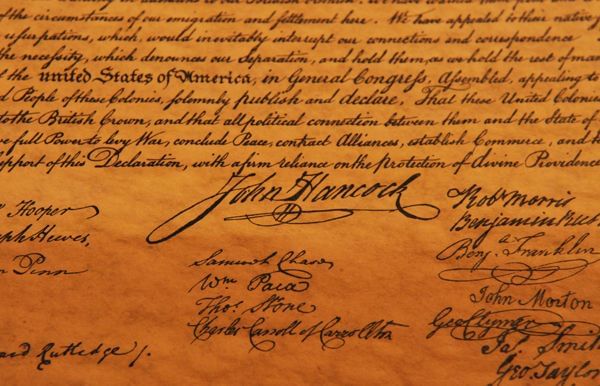 in attentions to our British brethren. We have warned them from time
of the circumstances of our emigration and settlement here. We have appealed to their native
usurpations, which, would inevitably interrupt our connections and correspondence
the necessity, which denounces our Separation, and hold them, as we hold the rest of man
the united States of America, in General Congress, Assembled, appealing to
People of these Colonies, solemnly publish and declare, That these United Colonie
to the British Crown, and that all political connection between them and the State of
full Power to levy War, conclude Peace, contract Alliances, establish Commerce, and to
support of this Declaration, with a firm reliance on the protection of divine Providence
John Hancock
Hooper
Hewes,
Penn
Rutledge /.
Samuel Chase
Wm. Paca
Thos. Stone
Charles Carroll of Carrollton
Robt Morris
Benjamin Rush
Benja. Franklin
John Morton
Geo Clymer
Jas. Smith
Geo. Taylor